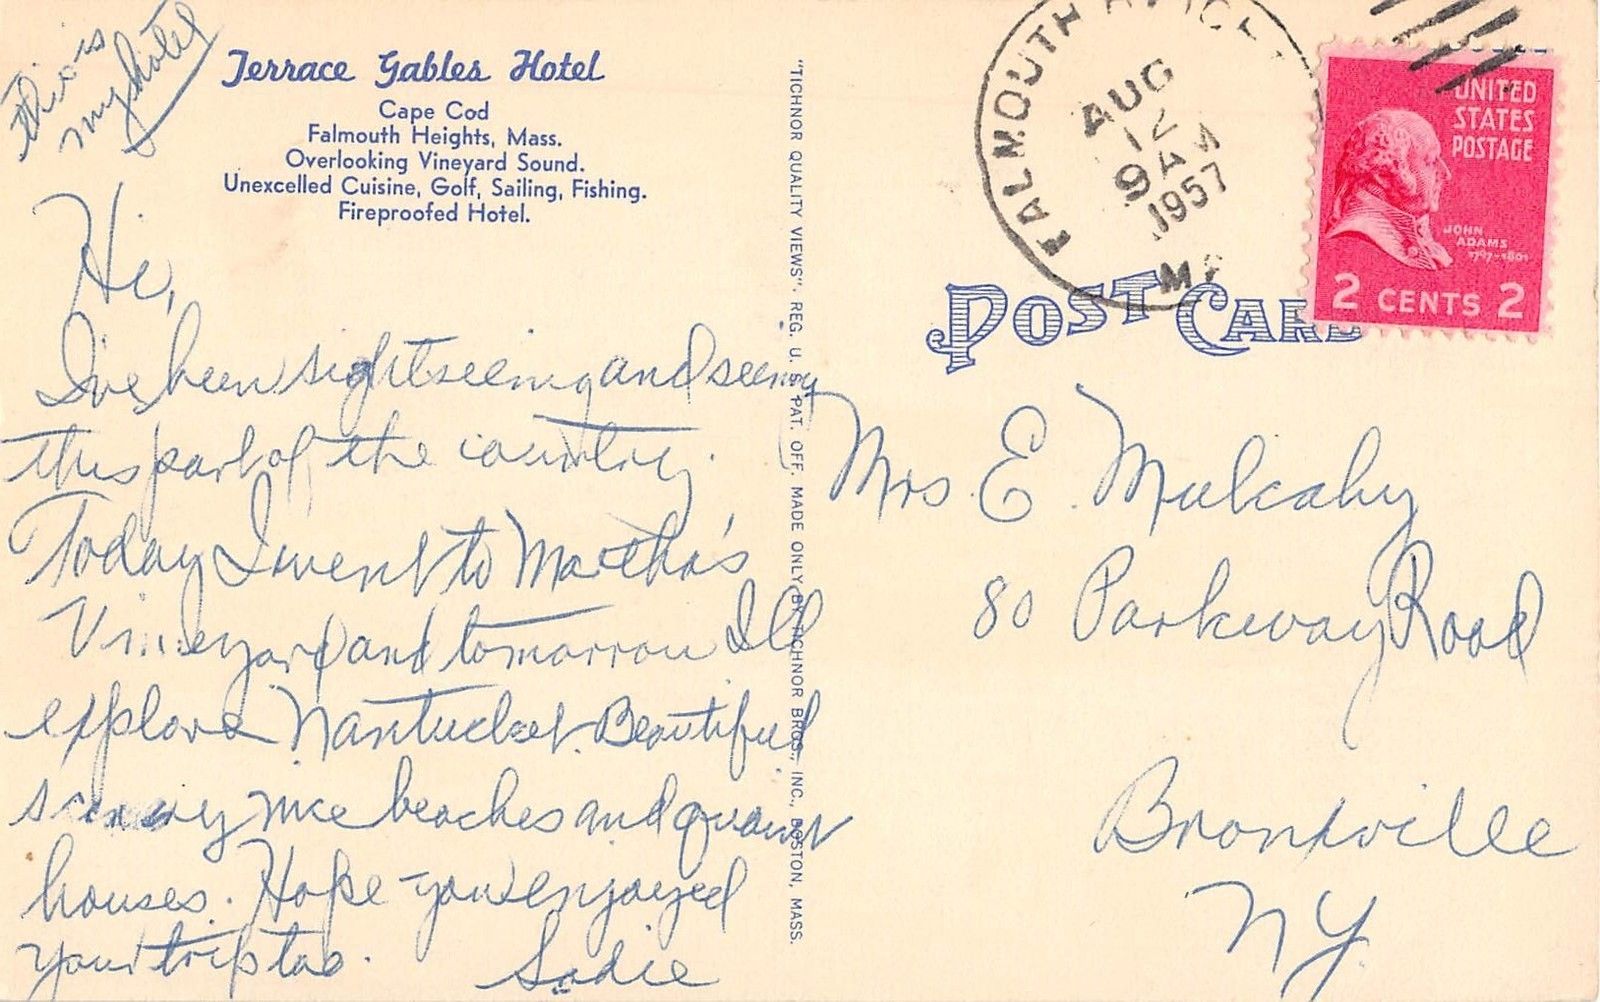 this is
my hotel
Terrace Gables Hotel
Cape Cod
Falmouth Heights, Mass.
Overlooking Vineyard Sound.
Unexcelled Cuisine, Golf, Sailing, Fishing.
Fireproofed Hotel.
Hi,
I've been sightseeing and seeing
this part of the country.
Today I went to Martha's
Vineyard and tomorrow I'll
explore Nantucket. Beautiful
scenery nice beaches and quaint
houses. Hope you enjoyed
your trip too.
Sadie
"TICHNOR QUALITY VIEWS". REG. U. S. PAT. OFF. MADE ONLY BY TICHNOR BROS., INC., BOSTON, MASS.
FALMOUTH
AUG
12
9 AM
1957
UNITED
STATES
POSTAGE
JOHN
ADAMS
1797-1801
2 CENTS 2
POST CARD
Mrs. E. Mulcahy
80 Parkway Road
Bronxville
NY.